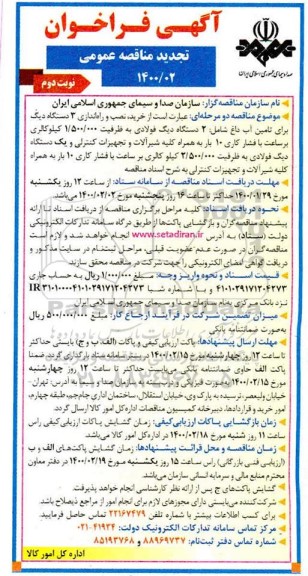 آگهی فراخوان
تجدید مناقصه عمومی
۱۴۰۰/۰۲
نوبت دوم
صدا و سیمای جمهوری اسلامی ایران
نام سازمان مناقصه‌گزار: سازمان صدا و سیمای جمهوری اسلامی ایران
موضوع مناقصه دو مرحله‌ای: عبارت است از خرید، نصب و راه‌اندازی ۳ دستگاه دیگ
برای تامین آب داغ شامل: ۲ دستگاه دیگ فولادی به ظرفیت ۱/۵۰۰/۰۰۰ کیلوکالری
برساعت با فشار کاری ۱۰ بار به همراه کلیه شیرآلات و تجهیزات کنترلی و یک دستگاه
دیگ فولادی به ظرفیت ۲/۵۰۰/۰۰۰ کیلو کالری بر ساعت با فشار کاری ۱۰ بار به همراه
کلیه شیرآلات و تجهیزات کنترلی به شرح اسناد مناقصه
مهلت دریافت اسناد مناقصه از سامانه ستاد: از ساعت ۱۲ روز یکشنبه
مورخ ۱۴۰۰/۰۱/۲۹ حداکثر تا ساعت ۱۶ روز پنجشنبه مورخ ۱۴۰۰/۰۲/۰۲ می‌باشد.
نحوه دریافت اسناد: کلیه مراحل برگزاری مناقصه از دریافت اسناد تا ارائه
پیشنهاد مناقصه‌گران و بازگشایی پاکت‌ها از طریق درگاه سامانه تدارکات الکترونیکی
دولت (ستاد) به آدرس www.setadiran.ir انجام خواهد شد و لازم است
مناقصه‌گران در صورت عدم عضویت قبلی، مراحل ثبت‌نام در سایت مذکور و
دریافت گواهی امضای الکترونیکی را جهت شرکت در مناقصه محقق سازند.
قیمت اسناد و نحوه واریز وجه: مبلغ ۱/۰۰۰/۰۰۰ ریال به حساب جاری
نزد بانک مرکزی بنام سازمان صدا و سیمای جمهوری اسلامی ایران
میزان تضمین شرکت در فرآیند ارجاع کار: مبلغ ۵۰۰/۰۰۰/۰۰۰ ریال
به‌صورت ضمانتنامه بانکی
مهلت ارسال پیشنهادها: پاکت ارزیابی کیفی و پاکات (الف، ب و ج) بایستی حداکثر
تا ساعت ۱۲ روز چهارشنبه مورخ ۱۴۰۰/۰۲/۱۵ در بستر سامانه ستاد بارگذاری گردد. ضمنا
پاکت الف حاوی ضمانتنامه بانکی می‌بایست حداکثر تا ساعت ۱۲ روز چهارشنبه
مورخ ۱۴۰۰/۰۲/۱۵ به‌صورت فیزیکی و دربسته به سازمان صدا و سیما به آدرس: تهران-
خیابان ولیعصر، نرسیده به پارک‌وی، خیابان استقلال، ساختمان اداری جام‌جم، طبقه چهارم،
امور خرید و قراردادها، دبیرخانه کمیسیون مناقصات اداره کل امور کالا ارسال گردد.
زمان بازگشایی پاکات ارزیابی کیفی: زمان گشایش پاکات ارزیابی کیفی راس
ساعت ۱۱ روز شنبه مورخ ۱۴۰۰/۰۲/۱۸ در اداره کل امور کالا می‌باشد.
زمان مناقصه و محل قرائت پیشنهادها: زمان گشایش پاکت‌های الف و ب
(ارزیابی فنی بازرگانی) راس ساعت ۱۵ روز یکشنبه مورخ ۱۴۰۰/۰۲/۱۹ در دفتر معاون
محترم منابع مالی و سرمایه انسانی سازمان می‌باشد.
گشایش پاکت‌های ج پس از ارائه نظر کارشناسی انجام خواهد پذیرفت.
شرکت‌کننده می‌بایستی دارای مجوزهای لازم برای انجام امور از مراجع ذیصلاح باشد.
برای کسب اطلاعات بیشتر با شماره تلفن ۲۲۱۶۷۴۷۹ تماس حاصل فرمایید.
مرکز تماس سامانه تدارکات الکترونیک دولت: ۴۱۹۳۴-۰۲۱
شماره تماس دفتر ثبت‌نام: ۸۸۹۶۹۷۳۷ و ۸۵۱۹۳۷۶۸
اداره کل امور کالا